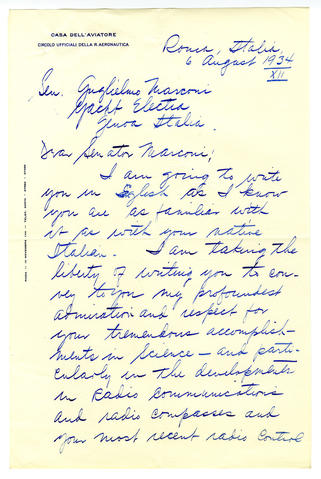 CASA DELL'AVIATORE
CIRCOLO UFFICIALI DELLA R. AERONAUTICA
Roma, Italia,
6 August 1934
XII
Sen. Guglielmo Marconi
Yacht Electra
Genoa Italia.
Dear Senator Marconi;
I am going to write
you in English as I know
you are as familiar with
it as with your native
Italian. I am taking the
liberty of writing you to con-
vey to you my profoundest
admiration and respect for
your tremendous accomplish-
ments in Science - and parti-
cularly in the developments
in Radio Communications
and radio compasses and
your most recent radio control